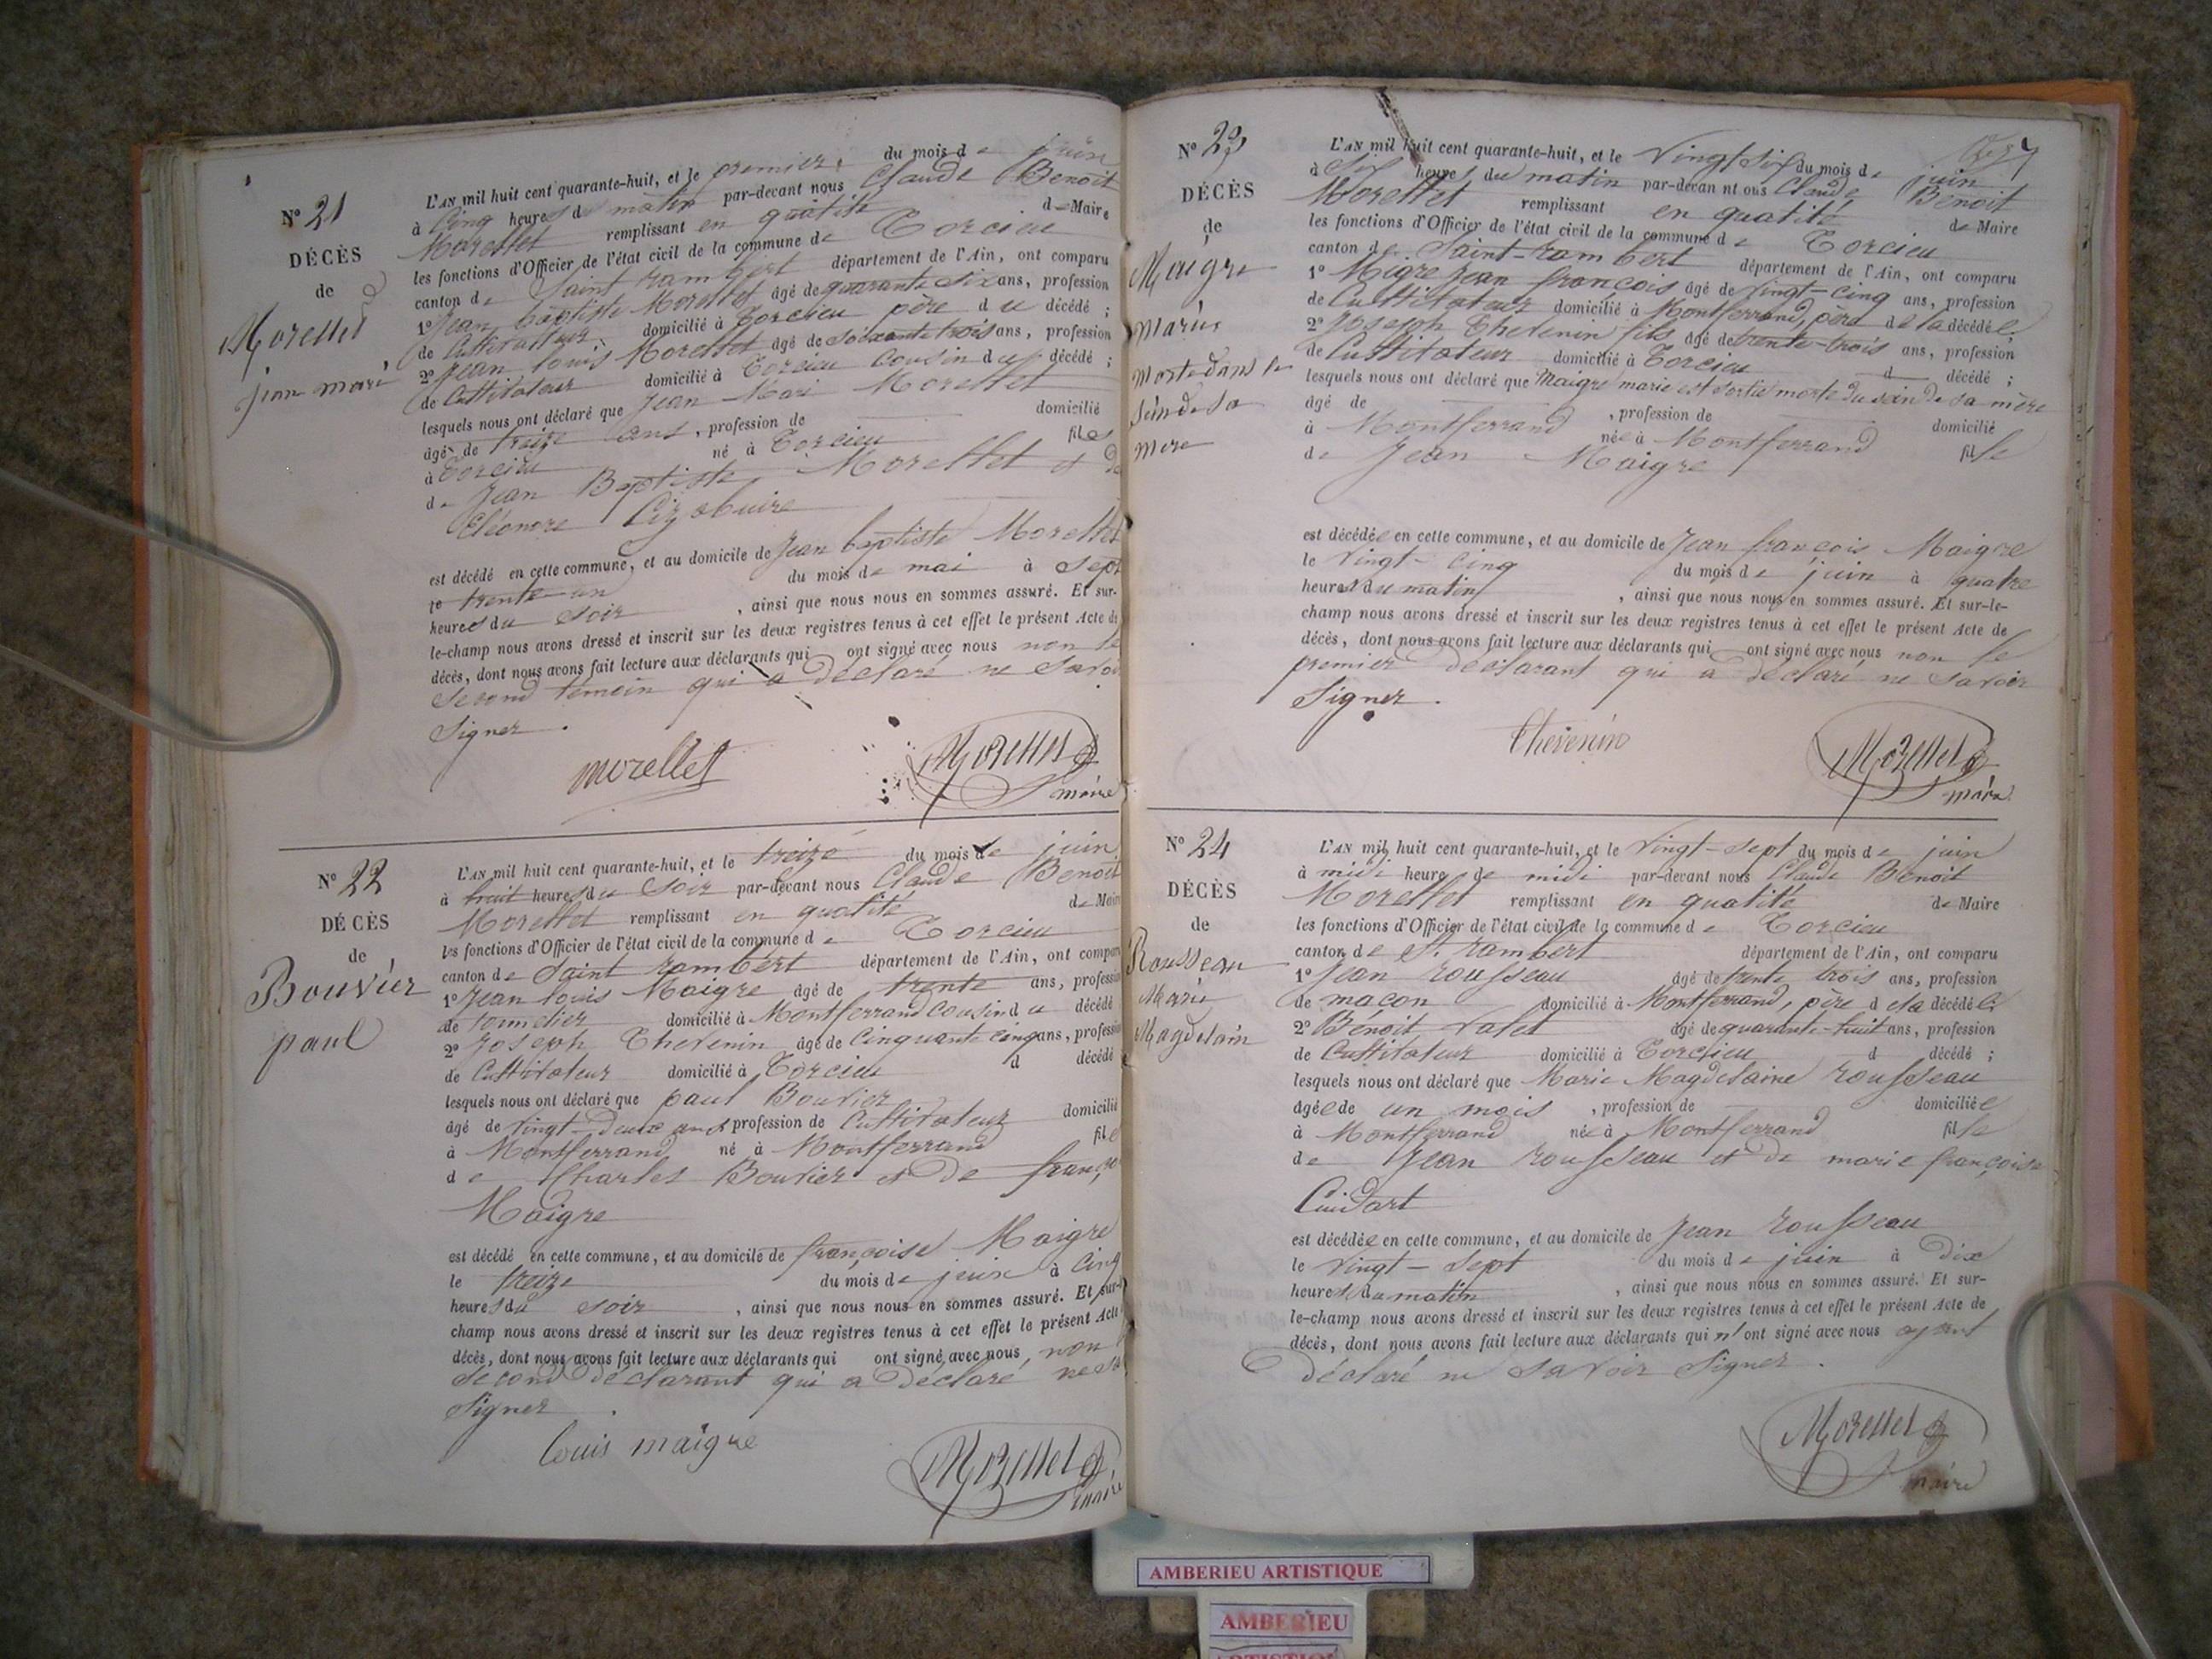 N° 21
DÉCÈS
de
Morellet
jean marie
L'AN mil huit cent quarante-huit, et le premier du mois de juin
à Cinq heures du matin par-devant nous Claude Benoit
Morellet remplissant en qualité de Maire
les fonctions d'Officier de l'état civil de la commune de Torcieu
canton de Saint rambert département de l'Ain, ont comparu
1° Jean baptiste Morellet âgé de quarante six ans, profession
de Cultivateur domicilié à Torcieu père du décédé ;
2° Jean louis Morellet âgé de soixante trois ans, profession
de Cultivateur domicilié à Torcieu cousin du décédé ;
lesquels nous ont déclaré que Jean Mari Morellet
âgé de treize ans, profession de domicilié
à Torcieu né à Torcieu fils
de Jean Baptiste Morellet et de
Eléonore
est décédé en cette commune, et au domicile de Jean baptiste Morellet
le trente un du mois de mai à sept
heures du soir, ainsi que nous nous en sommes assuré. Et sur-
le-champ nous avons dressé et inscrit sur les deux registres tenus à cet effet le présent Acte de
décès, dont nous avons fait lecture aux déclarants qui ont signé avec nous non le
second témoin qui a déclaré ne savoir
signer.
morellet
Morellet
maire
N° 22
DÉCÈS
de
Bouvier
paul
L'AN mil huit cent quarante-huit, et le treize du mois de juin
à huit heures du soir par-devant nous Claude Benoit
Morellet remplissant en qualité de Maire
les fonctions d'Officier de l'état civil de la commune de Torcieu
canton de Saint rambert département de l'Ain, ont comparu
1° Jean louis Maigre âgé de trente ans, profession
de tonnelier domicilié à Montferrand cousin du décédé
2° Joseph Thevenin âgé de Cinquante cinq ans, profession
de Cultivateur domicilié à Torcieu d décédé
lesquels nous ont déclaré que paul Bouvier
âgé de vingt-deux ans profession de Cultivateur domicilié
à Montferrand né à Montferrand fils
de Charles Bouvier et de
Maigre
est décédé en cette commune, et au domicile de françoise Maigre
le treize du mois de juin à Cinq
heures du soir, ainsi que nous nous en sommes assuré. Et sur-le
champ nous avons dressé et inscrit sur les deux registres tenus à cet effet le présent Acte
décès, dont nous avons fait lecture aux déclarants qui ont signé avec nous non
second déclarant qui a déclaré ne
signer.
Louis maigre
Morellet
maire
N° 23
DÉCÈS
de
Maigre
marie
morte dans le
sein de sa
mere
L'AN mil huit cent quarante-huit, et le vingt six du mois de juin
à Six heures du matin par-devant nous Claude Benoit
Morellet remplissant en qualité de Maire
les fonctions d'Officier de l'état civil de la commune de Torcieu
canton de Saint-rambert département de l'Ain, ont comparu
1° Maigre Jean françois âgé de vingt-cinq ans, profession
de Cultivateur domicilié à Montferrand, père de la décédée
2° Joseph Thevenin fils âgé de trente-trois ans, profession
de Cultivateur domicilié à Torcieu d décédé ;
lesquels nous ont déclaré que Maigre marie est sortie morte du sein de sa mère
âgé de , profession de domicilié
à Montferrand née à Montferrand fille
de Jean Maigre
est décédée en cette commune, et au domicile de Jean françois Maigre
le vingt-cinq du mois de juin à quatre
heures du matin, ainsi que nous nous en sommes assuré. Et sur-le-
champ nous avons dressé et inscrit sur les deux registres tenus à cet effet le présent Acte de
décès, dont nous avons fait lecture aux déclarants qui ont signé avec nous non le
premier déclarant qui a déclaré ne savoir
signer.
Thevenin
Morellet
maire
N° 24
DÉCÈS
de
Rousseau
Marie
Magdelaine
L'AN mil huit cent quarante-huit, et le vingt-sept du mois de juin
à midi heure de midi par-devant nous Claude Benoit
Morellet remplissant en qualité de Maire
les fonctions d'Officier de l'état civil de la commune de Torcieu
canton de St. rambert département de l'Ain, ont comparu
1° Jean rousseau âgé de trente trois ans, profession
de maçon domicilié à Montferrand, père de la décédée
2° Bénoit valet âgé de quarante-huit ans, profession
de Cultivateur domicilié à Torcieu d décédé ;
lesquels nous ont déclaré que Marie Magdelaine rousseau
âgée de un mois, profession de domiciliée
à Montferrand née à Montferrand fille
de Jean rousseau et de marie françoise
est décédée en cette commune, et au domicile de Jean rousseau
le vingt-sept du mois de juin à dix
heures du matin, ainsi que nous nous en sommes assuré. Et sur-
le-champ nous avons dressé et inscrit sur les deux registres tenus à cet effet le présent Acte de
décès, dont nous avons fait lecture aux déclarants qui n'ont signé avec nous ayant
déclaré ne savoir signer.
Morellet
maire
AMBERIEU ARTISTIQUE
AMBERIEU
ARTISTIQUE